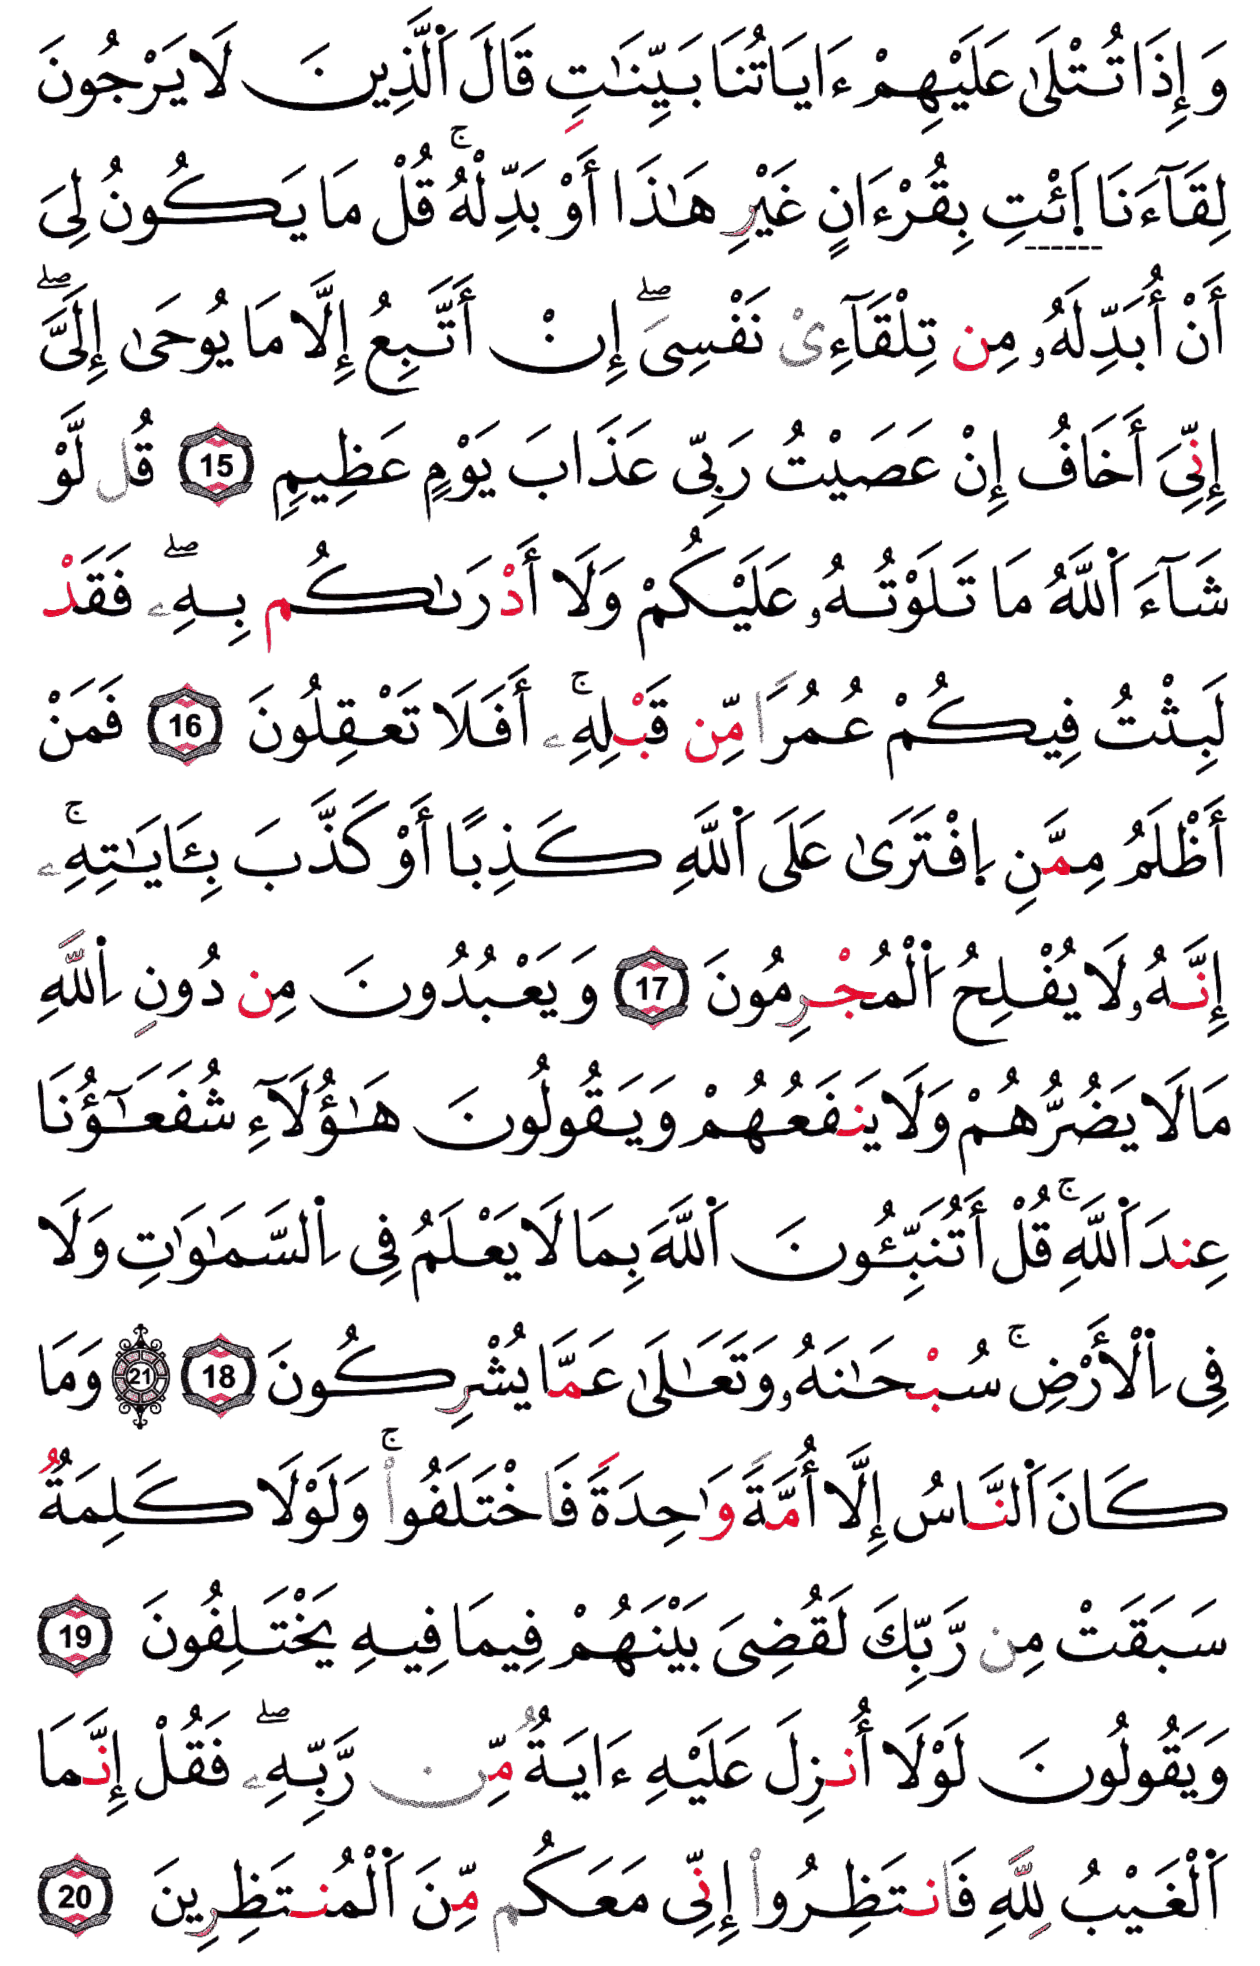 وَإِذَا تُتْلَىٰ عَلَيْهِمْ ءَايَاتُنَا بَيِّنَـٰتٍ قَالَ اَ۬لَّذِينَ لَا يَرْجُونَ
لِقَآءَنَا اَ۪ئْتِ بِقُرْءَانٍ غَيْرِ هَـٰذَا أَوْ بَدِّلْهُ ۚ قُلْ مَا يَكُونُ لِىَ
أَنْ أُبَدِّلَهُۥ مِن تِلْقَآءِىْ نَفْسِىَ ۖ إِنْ أَتَّبِعُ إِلَّا مَا يُوحَىٰ إِلَىَّ ۖ
إِنِّىَ أَخَافُ إِنْ عَصَيْتُ رَبِّى عَذَابَ يَوْمٍ عَظِيمٍ 15 قُل لَّوْ
شَآءَ اَ۬للَّهُ مَا تَلَوْتُهُۥ عَلَيْكُمْ وَلَا أَدْرَىٰكُم بِهِۦ ۖ فَقَدْ
لَبِثْتُ فِيكُمْ عُمُرًا مِّن قَبْلِهِۦ ۚ أَفَلَا تَعْقِلُونَ 16 فَمَنْ
أَظْلَمُ مِمَّنِ اِ۪فْتَرَىٰ عَلَى اَ۬للَّهِ كَذِبًا أَوْ كَذَّبَ بِـَٔايَـٰتِهِۦ ۚ
إِنَّهُۥ لَا يُفْلِحُ اُ۬لْمُجْرِمُونَ 17 وَيَعْبُدُونَ مِن دُونِ اِ۬للَّهِ
مَا لَا يَضُرُّهُمْ وَلَا يَنفَعُهُمْ وَيَقُولُونَ هَـٰؤُلَآءِ شُفَعَـٰٓؤُنَا
عِندَ اَ۬للَّهِ ۚ قُلْ أَتُنَبِّـُٔونَ اَ۬للَّهَ بِمَا لَا يَعْلَمُ فِى اِ۬لسَّمَـٰوَٰتِ وَلَا
فِى اِ۬لْأَرْضِ ۚ سُبْحَـٰنَهُۥ وَتَعَـٰلَىٰ عَمَّا يُشْرِكُونَ 18 21 وَمَا
كَانَ اَ۬لنَّاسُ إِلَّا أُمَّةً وَٰحِدَةً فَاخْتَلَفُوا۟ ۚ وَلَوْلَا كَلِمَةٌ
سَبَقَتْ مِن رَّبِّكَ لَقُضِىَ بَيْنَهُمْ فِيمَا فِيهِ يَخْتَلِفُونَ 19
وَيَقُولُونَ لَوْلَا أُنزِلَ عَلَيْهِ ءَايَةٌ مِّن رَّبِّهِۦ ۖ فَقُلْ إِنَّمَا
اَ۬لْغَيْبُ لِلَّهِ فَانتَظِرُوا۟ إِنِّى مَعَكُم مِّنَ اَ۬لْمُنتَظِرِينَ 20